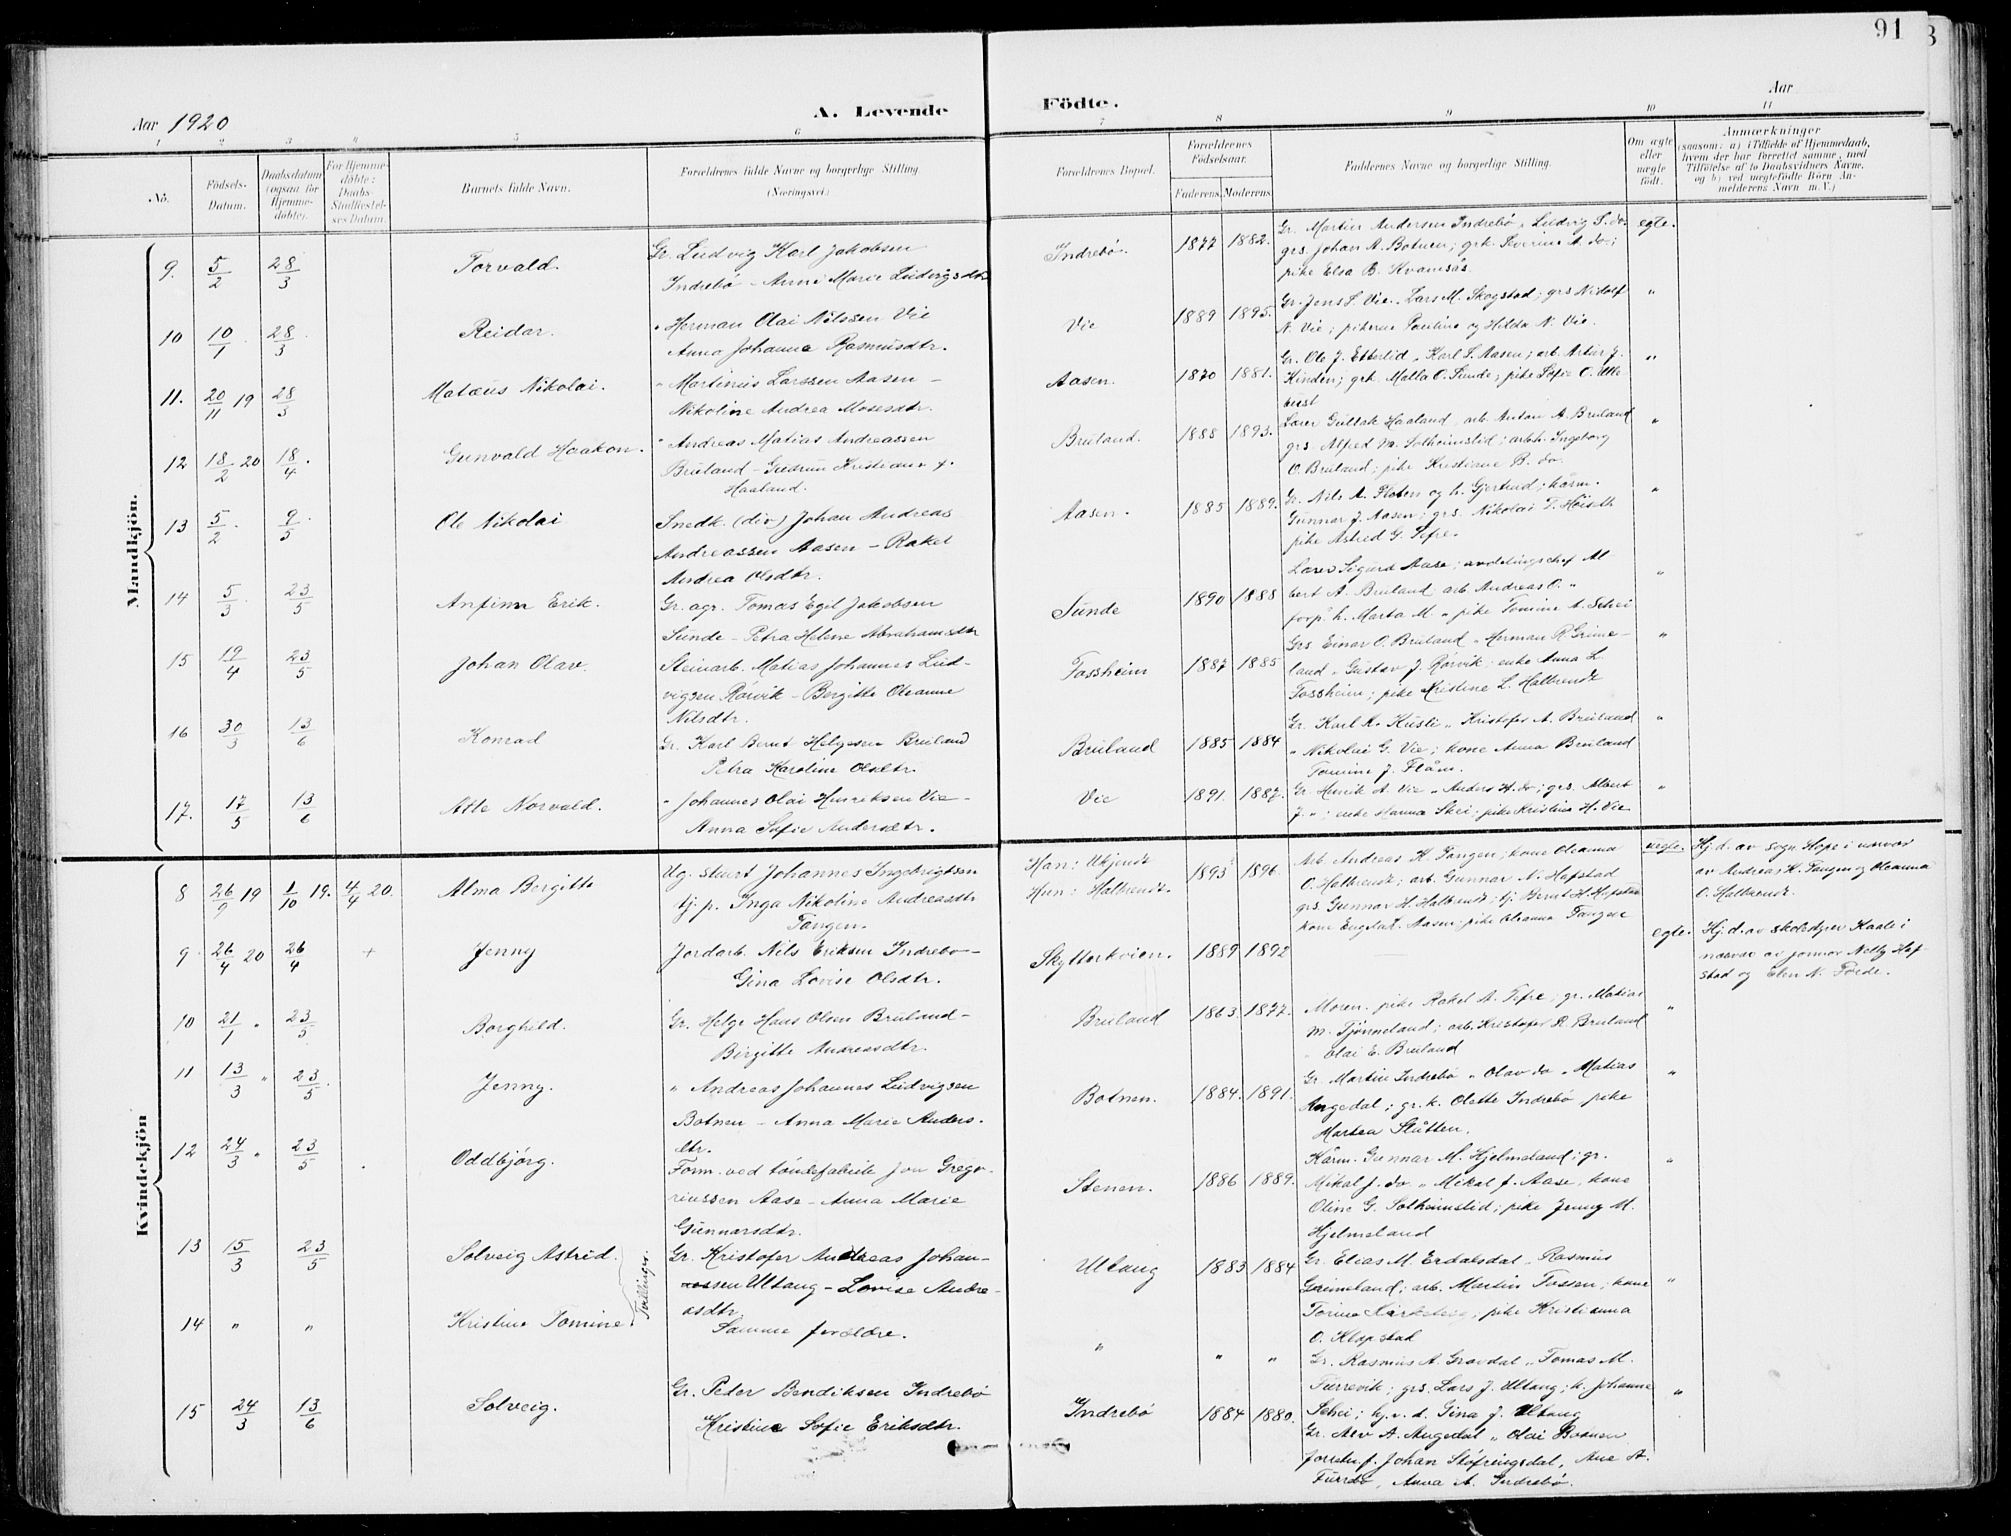 91
Aar 1920
A. Levende
Födte.
Aar
1 2 3 4 5 6 7 8 9 10 11
No.
Födsels-Datum.
Daabsdatum (ogsaa for Hjemmedöbte).
For Hjemmedöbte: Daabs-Stadfestelses Datum.
Barnets fulde Navn.
Forældrenes fulde Navne og borgerlige Stilling (Næringsvei.)
Forældrenes Bopæl.
Forældrenes Födselsaar.
Faderens. Moderens.
Faddernes Navne og borgerlige Stilling.
Om ægte eller uægte født.
Anmærkninger
(saasom: a) i Tilfælde af Hjemmedaab, hvem der har forrettet samme, med Tilföielse af to Daabsvidners Navne, og b) ved uægtefödte Börn Anmelderens Navn m. V.)
Mandkjön.
9. 5/2 28/3 Torvald. Gr. Ludvig Karl Jakobsen
Indrebö - Anne Marie Ludvigsdtr
Indrebö. 1877 1882. Gr. Martin Andersen Indrebö „ Ludvig S. do. egte.
grs. Johan A. Botnen; grk. Severine A. do.;
pike Elsa B. Kvamsås
10 10/1 28/3 Reidar. „ Herman Olai Nilssen Vie
Anna Johanna Rasmusdtr.
Vie 1889 1895. Gr. Jens S. Vie „ Lars M. Skogstad; grs Nidolf "
N. Vie; pikerne Pauline og Hilda N. Vie.
11. 20/11 19 28/3 Matæus Nikolai. „ Martinus Larssen Aasen -
Nikoline Andrea Mosesdtr.
Aasen. 1870 1881. Gr. Ole J. Etterlid „ Karl S. Aasen; arb. Artur J. "
Hinden; grk. Malla O. Sunde; pike Sofie O.
12 18/2 20 18/4. Gunvald Haakon. „ Andreas Matias Andreassen
Bruland - Gudrun Kristiane f.
Haaland.
Bruland. 1888 1893. Lærer Gullak Haaland, arb. Anton A. Bruland "
grs Alfred M. Solheimslid; arbk. Ingeborg
O. Bruland; pike Kristiane B. do.
13 5/2 9/5 Ole Nikolai Snedk. (div) Johan Andreas
Andreassen Aasen - Rakel
Andrea Olsdtr.
Aasen. 1885 1889. Gr. Nils A. Fleten og h. Gjertrud; kårm. "
Gunnar J. Aasen; grs. Nikolai T.
pike Astrid G. Tefre.
14 5/3 23/5 Anfinn Erik. Gr. agr. Tomas Egil Jakobsen
Sunde - Petra Helene Abrahamsdtr
Sunde 1890 1888 Lærer Sigurd Aase; avdelingschef Al "
bert A. Bruland arb Andreas O. "
forp. h. Marta M. „ pike Tomine A. Schei
15 19/4 23/5 Johan Olav. Stenarb. Matias Johannes Lud-
vigsen Rörvik - Bergitte Oleanne
Nilsdtr.
Fossheim 1887 1885 Grs Einar O. Bruland „ Herman R Grime- "
land „ Gustav J. Rörvik; enke Anna L.
Fossheim; pike Kristine L. Halbrendt
16 30/3 13/6 Konrad Gr. Karl Bernt Helgesen Bruland
Petra Karoline Olsdtr.
Bruland 1885 1884 Gr. Karl K. Husli „ Kristofer A. Bruland "
„ Nikolai G. Vie; kone Anna Bruland
Tomine J. Flåm.
17. 17/5 13/6 Atle Norvald. „ Johannes Olai Henriksen Vie -
Anna Sofie Andersdtr.
Vie 1891. 1887. Gr. Henrik A. Vie „ Anders H. do; grs. Albert "
J. „ ; enke Hanna Skei; pike Kristine H. Vie
Kvindekjön
8 26/9 19 1/10 19. 4/4 20. Alma Bergitte Ug. stuert Johannes Ingebrigtsen
tj. p. Inga Nikoline Andreasdtr
Tangen.
Han: Ukjendt
Hun: Halbrendt.
1893 1896. Arb. Andreas K. Tangen; kone Oleanna uegte.
O. Halbrendt; arb. Gunnar N. Hafstad
grs Gunnar H. Halbrendt; tj. Bernt H. Hafstad
kone Aasen; pike Oleanna Tangene
Hj. d. av sogn. Hope i nærvær
av Andreas K. Tangen og Oleanna
O. Halbrendt.
9. 26/4 20 26/4 + Jenny Jordarb. Nils Eriksen Indrebö -
Gina Lovise Olsdtr.
Skytterkvien. 1889 1892 — egte. Hj. d. av skolestyrer Kaale i
nærvær av jormor Nelly Haf-
stad og Elen N. Förde.
10 21/1 " 23/5 Borghild. Gr. Helge Hans Olsen Bruland -
Birgitte Andreasdtr.
Bruland 1863. 1877. Moren. pike Rakel A. Tefre; gr. Matias "
M. Tjönneland; arb. Kristofer R. Bruland
" Olai E. Bruland
11 13/3 " 23/5. Jenny. „ Andreas Johannes Ludvigsen
Botnen - Anna Marie Anders-
dtr.
Botnen. 1884. 1891. Gr. Martin Indrebö „ Olav do „ Matias "
Angedal; gr. k. Olette Indrebö pike
Martea Slåtten.
12 24/3 " 23/5 Oddbjörg. Form. ved töndefabrik Jon Grego-
riussen Aase - Anna Marie
Gunnarsdtr.
Stenen. 1886 1889. Kårm. Gunnar M. Hjelmeland; gr. "
Mikal J. do. „ Mikal J. Aase, kone
Oline G. Solheimslid; pike Jenny M.
Hjelmeland
13 15/3 23/5 Solveig Astrid. Gr. Kristofer Andreas Johan-
nessen Ullang - Lovise Andre-
asdtr.
Ullang 1883 1884 Gr. Elias M. Erdalsdal „ Rasmus "
Grimeland; arb. Martin Fossen; kone
Torine; pike Kristianna
O. Klopstad
Tvillinger.
14 " " Kristine Tomine Samme forældre.
" " " Gr. Rasmus A. Gravdal „ Tomas M.
Furrevik; grs. Lars J. Ullang; k. Johanne "
Schei; hj. v. d. Gina J. Ullang
15 24/3 13/6 Solveig. Gr. Peder Bendiksen Indrebö
Kristine Sofie Eriksdtr.
Indrebö 1884 1880. Gr. Alv A. Angedal „ Olai Botnen
Johan Stöfringsdal, Ane A.
Furebö, Anna A. Indrebö.